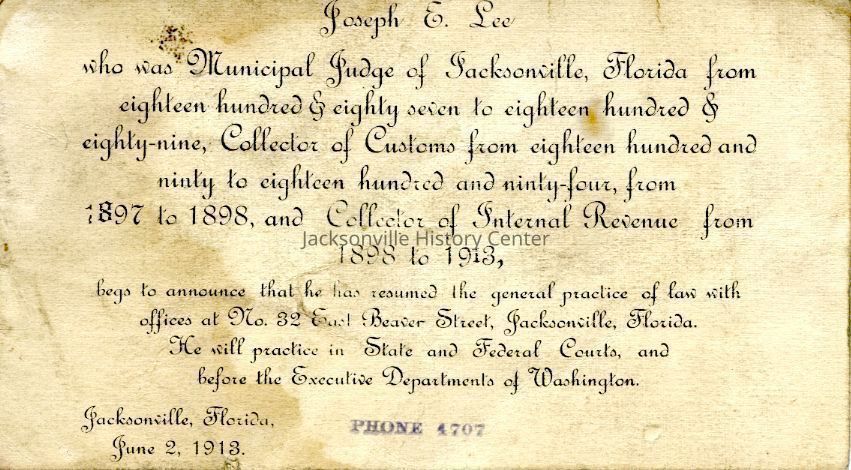 Joseph E. Lee
who was Municipal Judge of Jacksonville, Florida from
eighteen hundred & eighty seven to eighteen hundred &
eighty-nine, Collector of Customs from eighteen hundred and
ninty to eighteen hundred and ninty-four, from
1897 to 1898, and Collector of Internal Revenue from
Jacksonville History Center
1898 to 1913,
begs to announce that he has resumed the general practice of law with
offices at No. 32 East Beaver Street, Jacksonville, Florida.
He will practice in State and Federal Courts, and
before the Executive Departments of Washington.
Jacksonville, Florida,
June 2, 1913.
PHONE 4707